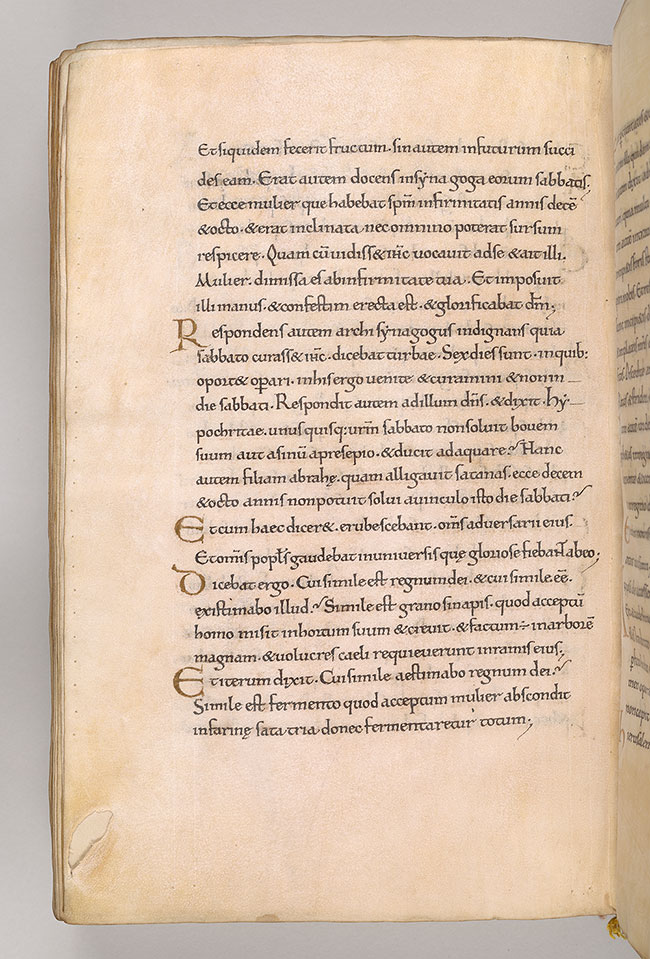 Et siquidem fecerit fructum. sin autem infuturum succi
des eam. Erat autem docens insynagoga eorum sabbatis.
Et ecce mulier que habebat sp̅m infirmitatis annis dece̅
& octo. & erat inclinata nec omnino poterat sursum
respicere. Quam cu̅ uidiss& ih̅c uocauit adse & ait illi.
Mulier. dimissa es abinfirmitate tua. Et imposuit
illi manus. & confestim erecta est. & glorificabat dm̅.
Respondens autem archisynagogus indignans quia
sabbato curass& ih̅c. dicebat turbae. Sex dies sunt. inquib:
oport& op̅ari. inhis ergo uenite & curamini & nonin
die sabbati. Respondit autem adillum dn̅s. & dixit. hy
pochritae. unus quisq: urm̅ sabbato nonsoluit bouem
suum aut asinu̅ apresepio. & ducit adaquare? Hanc
autem filiam abrahę. quam alligauit satanas. ecce decem
& octo annis nonpotuit solui auinculo isto die sabbati?
Et cum haec dicer&. erubescebant. om̅s aduersarii eius.
Et omis popl̅s gaudebat inuniuersis quę gloriose fiebant abeo;
Dicebat ergo. Cui simile est regnum dei. & cui simile. ee̅.
existimabo illud? Simile est grano sinapis. quod acceptu̅
homo misit inhortum suum & creuit. & factum ÷ inarbore̅
magnam. & uolucres caeli requieuerunt inramis eius;
Et iterum dixit. Cui simile aestimabo regnum dei?
Simile est fermento quod acceptum mulier abscondit
infarinę sata tria donec fermentaretur totum;